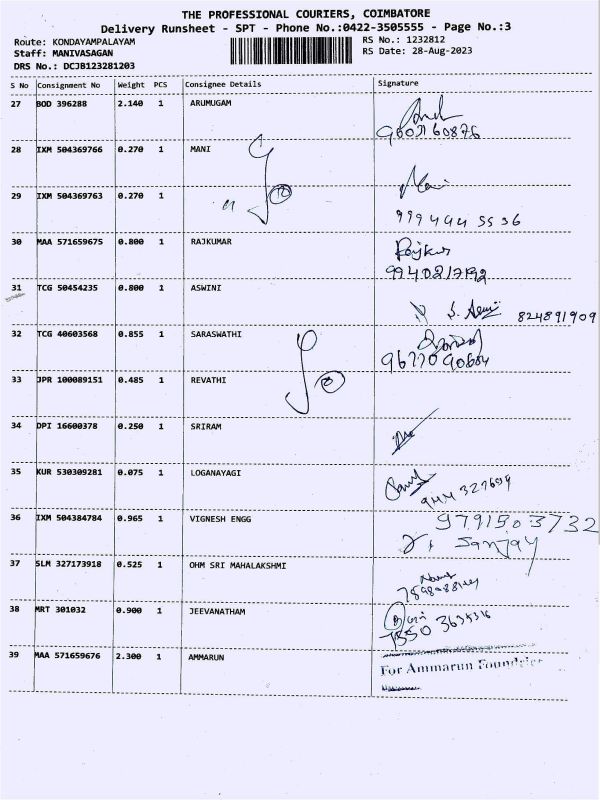 THE PROFESSIONAL COURIERS, COIMBATORE
Delivery Runsheet - SPT - Phone No.:0422-3505555 - Page No.:3
Route: KONDAYAMPALAYAM
Staff: MANIVASAGAN
DRS No.: DCJB123281203
RS No.: 1232812
RS Date: 28-Aug-2023
S No Consignment No Weight PCS Consignee Details Signature
27 BOD 396288 2.140 1 ARUMUGAM
28 IXM 504369766 0.270 1 MANI
29 IXM 504369763 0.270 1
999494 5536
30 MAA 571659675 0.800 1 RAJKUMAR
Rajkur
31 TCG 50454235 0.800 1 ASWINI
824891909
32 TCG 40603568 0.855 1 SARASWATHI
33 JPR 100089151 0.485 1 REVATHI
34 DPI 16600378 0.250 1 SRIRAM
35 KUR 530309281 0.075 1 LOGANAYAGI
36 IXM 504384784 0.965 1 VIGNESH ENGG
9791503732
Sanjay
37 SLM 327173918 0.525 1 OHM SRI MAHALAKSHMI
38 MRT 301032 0.900 1 JEEVANATHAM
39 MAA 571659676 2.300 1 AMMARUN
For Ammarun Foundries